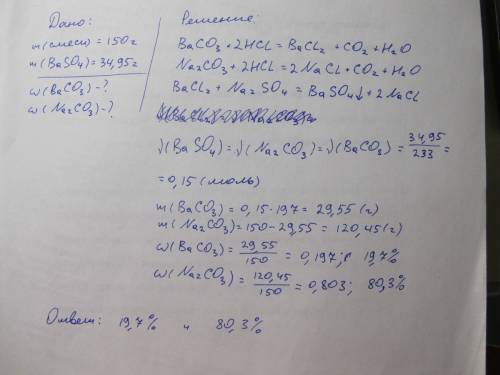 Дано:
m(смеси) = 150 г
m(BaSO₄) = 34,95 г
ω(BaCO₃) - ?
ω(Na₂CO₃) - ?
Решение:
BaCO₃ + 2HCl = BaCl₂ + CO₂ + H₂O
Na₂CO₃ + 2HCl = 2NaCl + CO₂ + H₂O
BaCl₂ + Na₂SO₄ = BaSO₄↓ + 2NaCl
√(BaSO₄) = √(Na₂CO₃) = √(BaCO₃) = 34,95/233 =
= 0,15 (моль)
m(BaCO₃) = 0,15 · 197 = 29,55 (г)
m(Na₂CO₃) = 150 - 29,55 = 120,45 (г)
ω(BaCO₃) = 29,55/150 = 0,197; 19,7%
ω(Na₂CO₃) = 120,45/150 = 0,803; 80,3%
Ответ: 19,7% и 80,3%